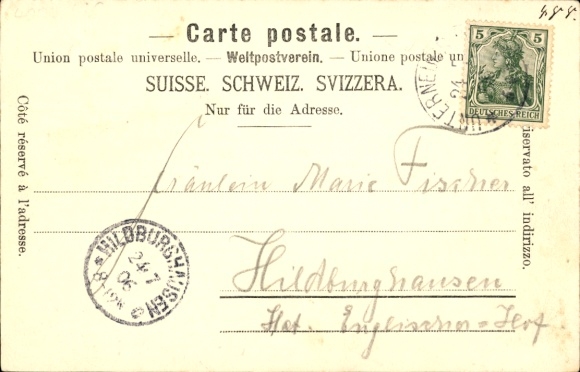 — Carte postale. —
Union postale universelle. — Weltpostverein. — Unione postale un
SUISSE. SCHWEIZ. SVIZZERA.
Nur für die Adresse.
Côté réservé à l'adresse.
riservato all' indirizzo.
5 5
DEUTSCHES REICH
24
Fräulein Marie Fischer
Hildburghausen
Hot. Englischer-Hof
HILDBURGHAUSEN
24 7
06